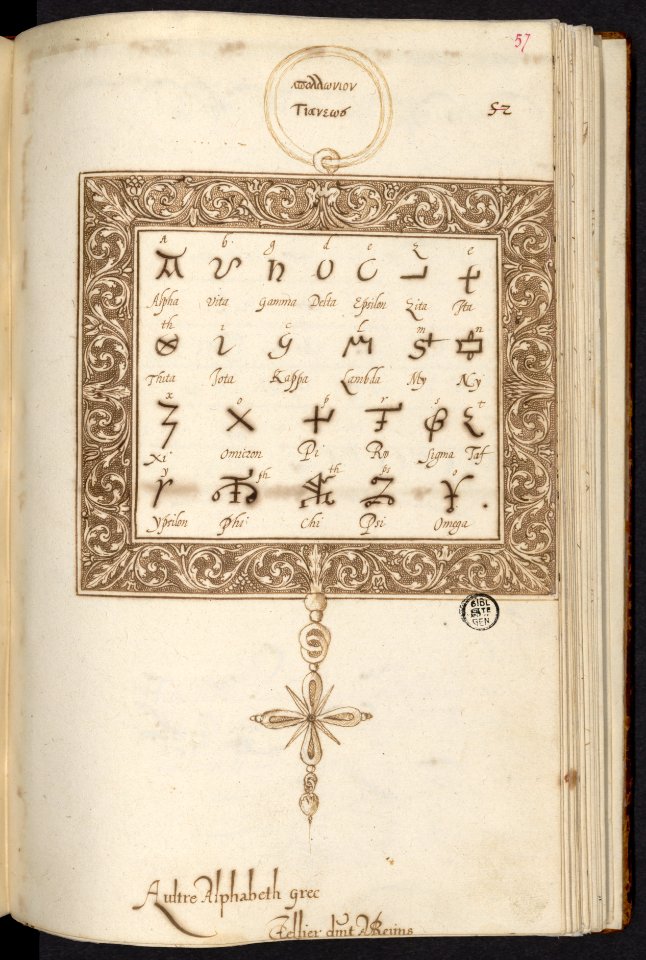 57
απολλωνιον
Τιανεως
52
A b g d e z e
Alpha Vita Gamma Delta Epsilon Zita Ita
th i c l m n
Thita Iota Kappa Lambda My Ny
x o p r s t
Xi Omicron Pi Ro Sigma Taf
y ph ch ps o
Ypsilon Phi Chi Psi Omega
BIBL
GEN
Aultre Alphabeth grec
Tellier dmt A Reims